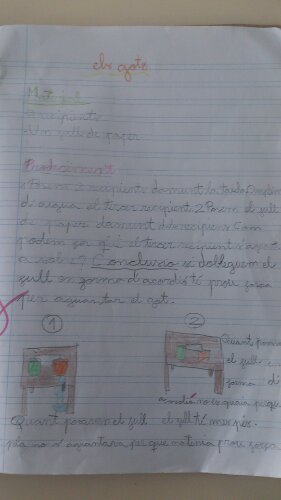 els gots
Material
recipients
Un full de paper
Procediment
Posem 2 recipients damunt la taula Omplim
d'aigua el tercer recipient 2 Posem el full
de paper damunt de recipens Com
podem fer que el tercer recipient s'aguanti
a sobre? Conclusió si dobleguem el
full en forma d'acordió té prou força
per aguantar el got.
1
2
Quant posem
el full en
forma d'
acordió no es queia perque
Quant posavem el full el full té mes pes.
pla no s'aguantava per que no tenia prou força